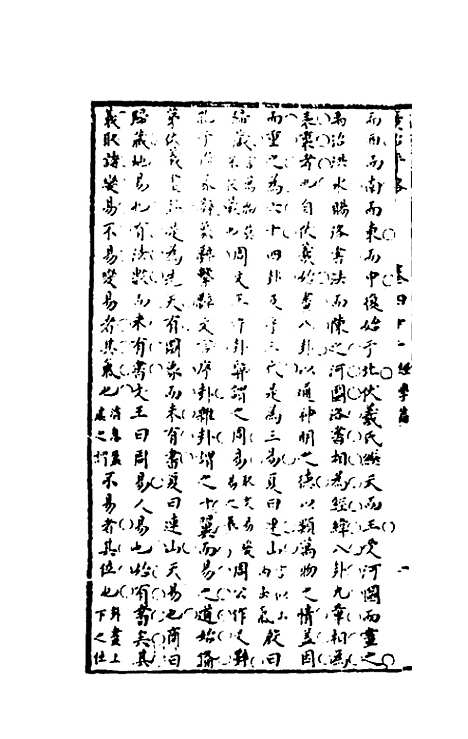 而西而南而東而中復始于北伏羲氏繼天而王受河圖而畫之
禹治洪水賜洛書法而陳之河圖洛書相為經緯八卦九章相為
表裏者也自伏羲始畫八卦以通神明之德以類萬物之情蓋因
而重之為六十四卦及乎三代是為三易夏曰連山 殷曰
歸藏 周文王作卦辭謂之周易 周公作爻辭
孔子作彖辭象辭繫辭文言序卦雜卦謂之十翼而易之道始備
第伏羲畫卦是為先天有圖象而未有書夏曰連山天易也商曰
歸藏地易也有法數而未有書文王曰周易人易也始有書矣其
義取諸變易不易變易者其氣也 不易者其位也